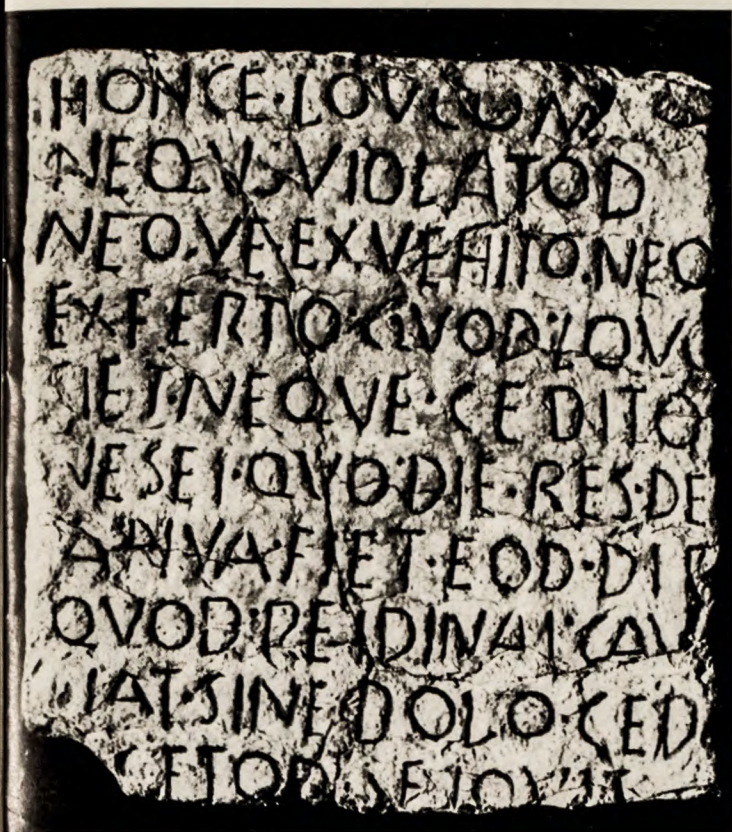 HONCE·LOVCOM
NEQVS·VIOLATOD
NEQVE·EXVEHITO·NEQ
EXFERTO·QVOD·LOVC
SIET·NEQVE·CEDITO
NESEI·QVO·DIE·RES·DE
ANVA·FIET·EOD·DIE
QVOD·REI·DINAI·CAV
IAT·SINE·DOLO·CED
CETOD